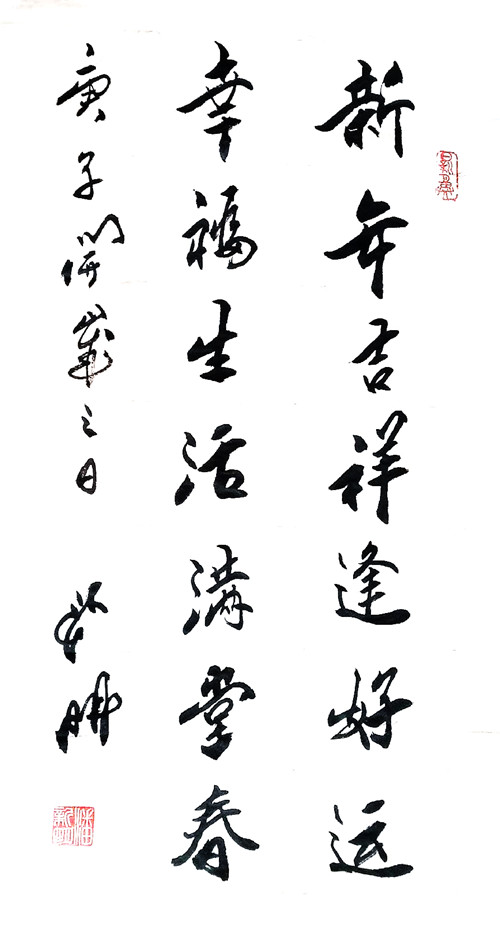 新年吉祥逢好运
幸福生活满堂春
庚子開歲之日